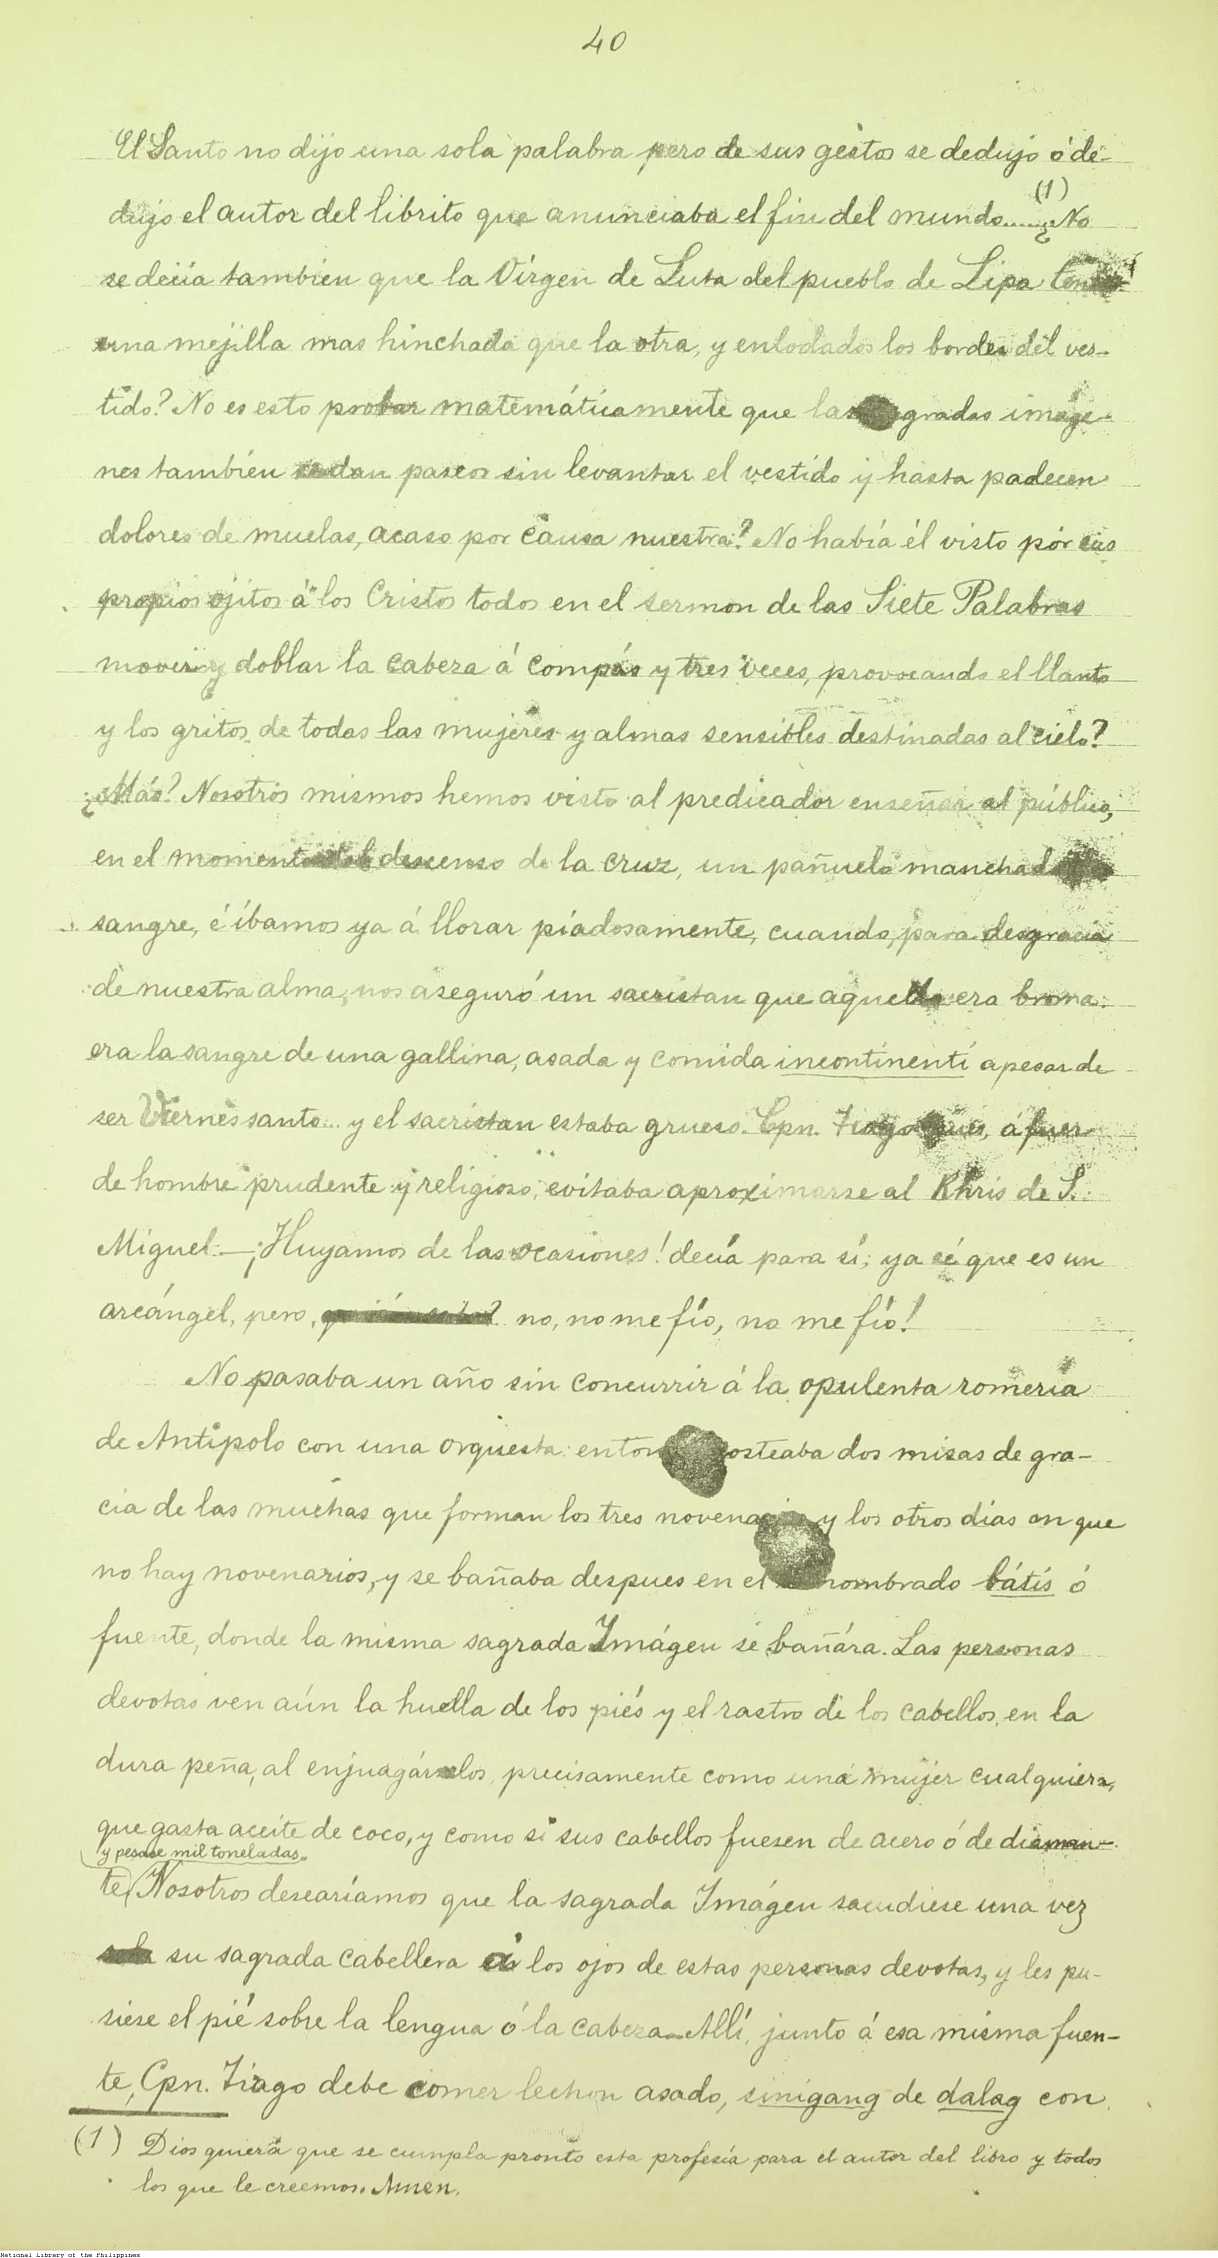 40
El Santo no dijo una sola palabra pero de sus gestos se dedujo ó de-
dujo el autor del librito que anunciaba el fin del mundo......(1) ¿No
se decía también que la Vírgen de Luta del pueblo de Lipa
una mejilla mas hinchada que la otra, y enlodados los bordes del ves-
tido? No es esto probar matemáticamente que las gradas imáge-
nes también se dan paseos sin levantar el vestido y hasta padecen
dolores de muelas, acaso por causa nuestra? No había él visto por sus
propios ojitos á los Cristos todos en el sermon de las Siete Palabras
mover y doblar la cabeza á compás y tres veces, provocando el llanto
y los gritos de todas las mujeres y almas sensibles destinadas al cielo?
¿Más? Nosotros mismos hemos visto al predicador enseñar al público,
en el momento del descenso de la cruz, un pañuelo manchado
sangre, é íbamos ya á llorar píadosamente, cuando, para desgracia
de nuestra alma, nos aseguró un sacristan que aquello era broma:
era la sangre de una gallina, asada y comida incontinenti apesar de
ser Viernes santo... y el sacristan estaba grueso. Cpn. Tiago pues, á fuer
de hombre prudente y religioso, evitaba aproximarse al Khris de S.
Miguel.—¡Huyamos de las ocasiones! decía para sí; ya sé que es un
arcángel, pero, no, no me fío, no me fío!
No pasaba un año sin concurrir á la opulenta romería
de Antipolo con una orquesta: costeaba dos misas de gra-
cia de las muchas que forman los tres novenarios y los otros días en que
no hay novenarios, y se bañaba despues en el nombrado bátis ó
fuente, donde la misma sagrada Imágen se bañára. Las personas
devotas ven aún la huella de los piés y el rastro de los cabellos, en la
dura peña, al enjuagárselos, precisamente como una mujer cualquiera,
que gasta aceite de coco, y como si sus cabellos fuesen de acero ó de diaman-
y pesase mil toneladas.
te. Nosotros desearíamos que la sagrada Imágen sacudiese una vez
su sagrada cabellera á los ojos de estas personas devotas, y les pu-
siese el pié sobre la lengua ó la cabeza.—Allí, junto á esa misma fuen-
te, Cpn. Tiago debe comer lechon asado, sinigang de dalag con
(1) Dios quiera que se cumpla pronto esta profesía para el autor del libro y todos
los que le creemos. Amen.
National Library of the Philippines